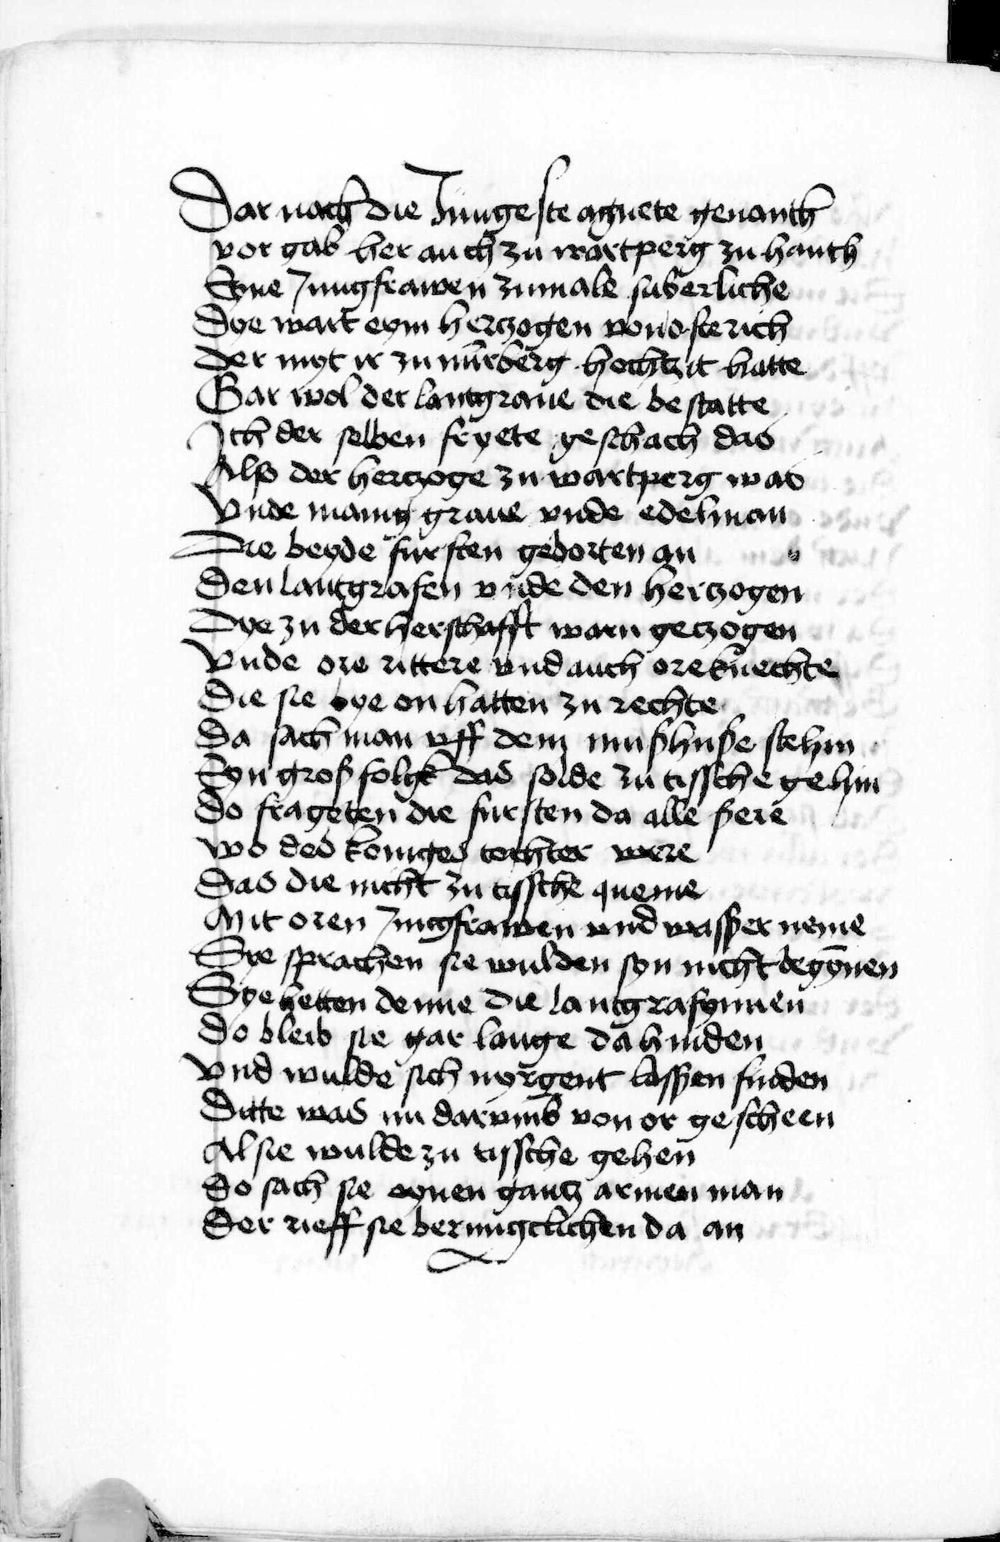 Dar nach die Jungeste agnete genanth
vor gab her auch zu wartperg zu hanth
Eyne Jungfrawen zumale suberliche
Dye wart eym hertzogen von osterich
der myt ir zu nurberg hochtzit hatte
Gar wol der lantgraue die bestatte
Jch der selben fryete geschach das
Alß der hertzoge zu wartperg was
Vnde manig graue vnde edelman
Die beyde fursten geborten an
Den lantgrafen vnde den hertzogen
Dye zu der herschafft warn getzogen
Vnde ore rittere vnd auch ore knechte
Die sie bye on hatten zu rechte
Da sach man vff dem mußhuße stehin
Eyn groß folgk das solde zu tissche gehin
Do frageten die fursten da alle ßere
wo des koniges tochter were
Das die nicht zu tissche queme
Mit oren Jungfrawen vnd wasßer neme
Sye sprachen sie wulden syn nicht begȳnen
Sye hetten denne die lantgrafynnen
Do bleib sie gar lange da hinden
Vnd wulde sich nyrgent lassen finden
Ditte was nu darvmb von or gescheen
Al sie wulde zu tissche gehen
do sach sie eynen gantz armen man
Der rieff sie bermigclichen da an